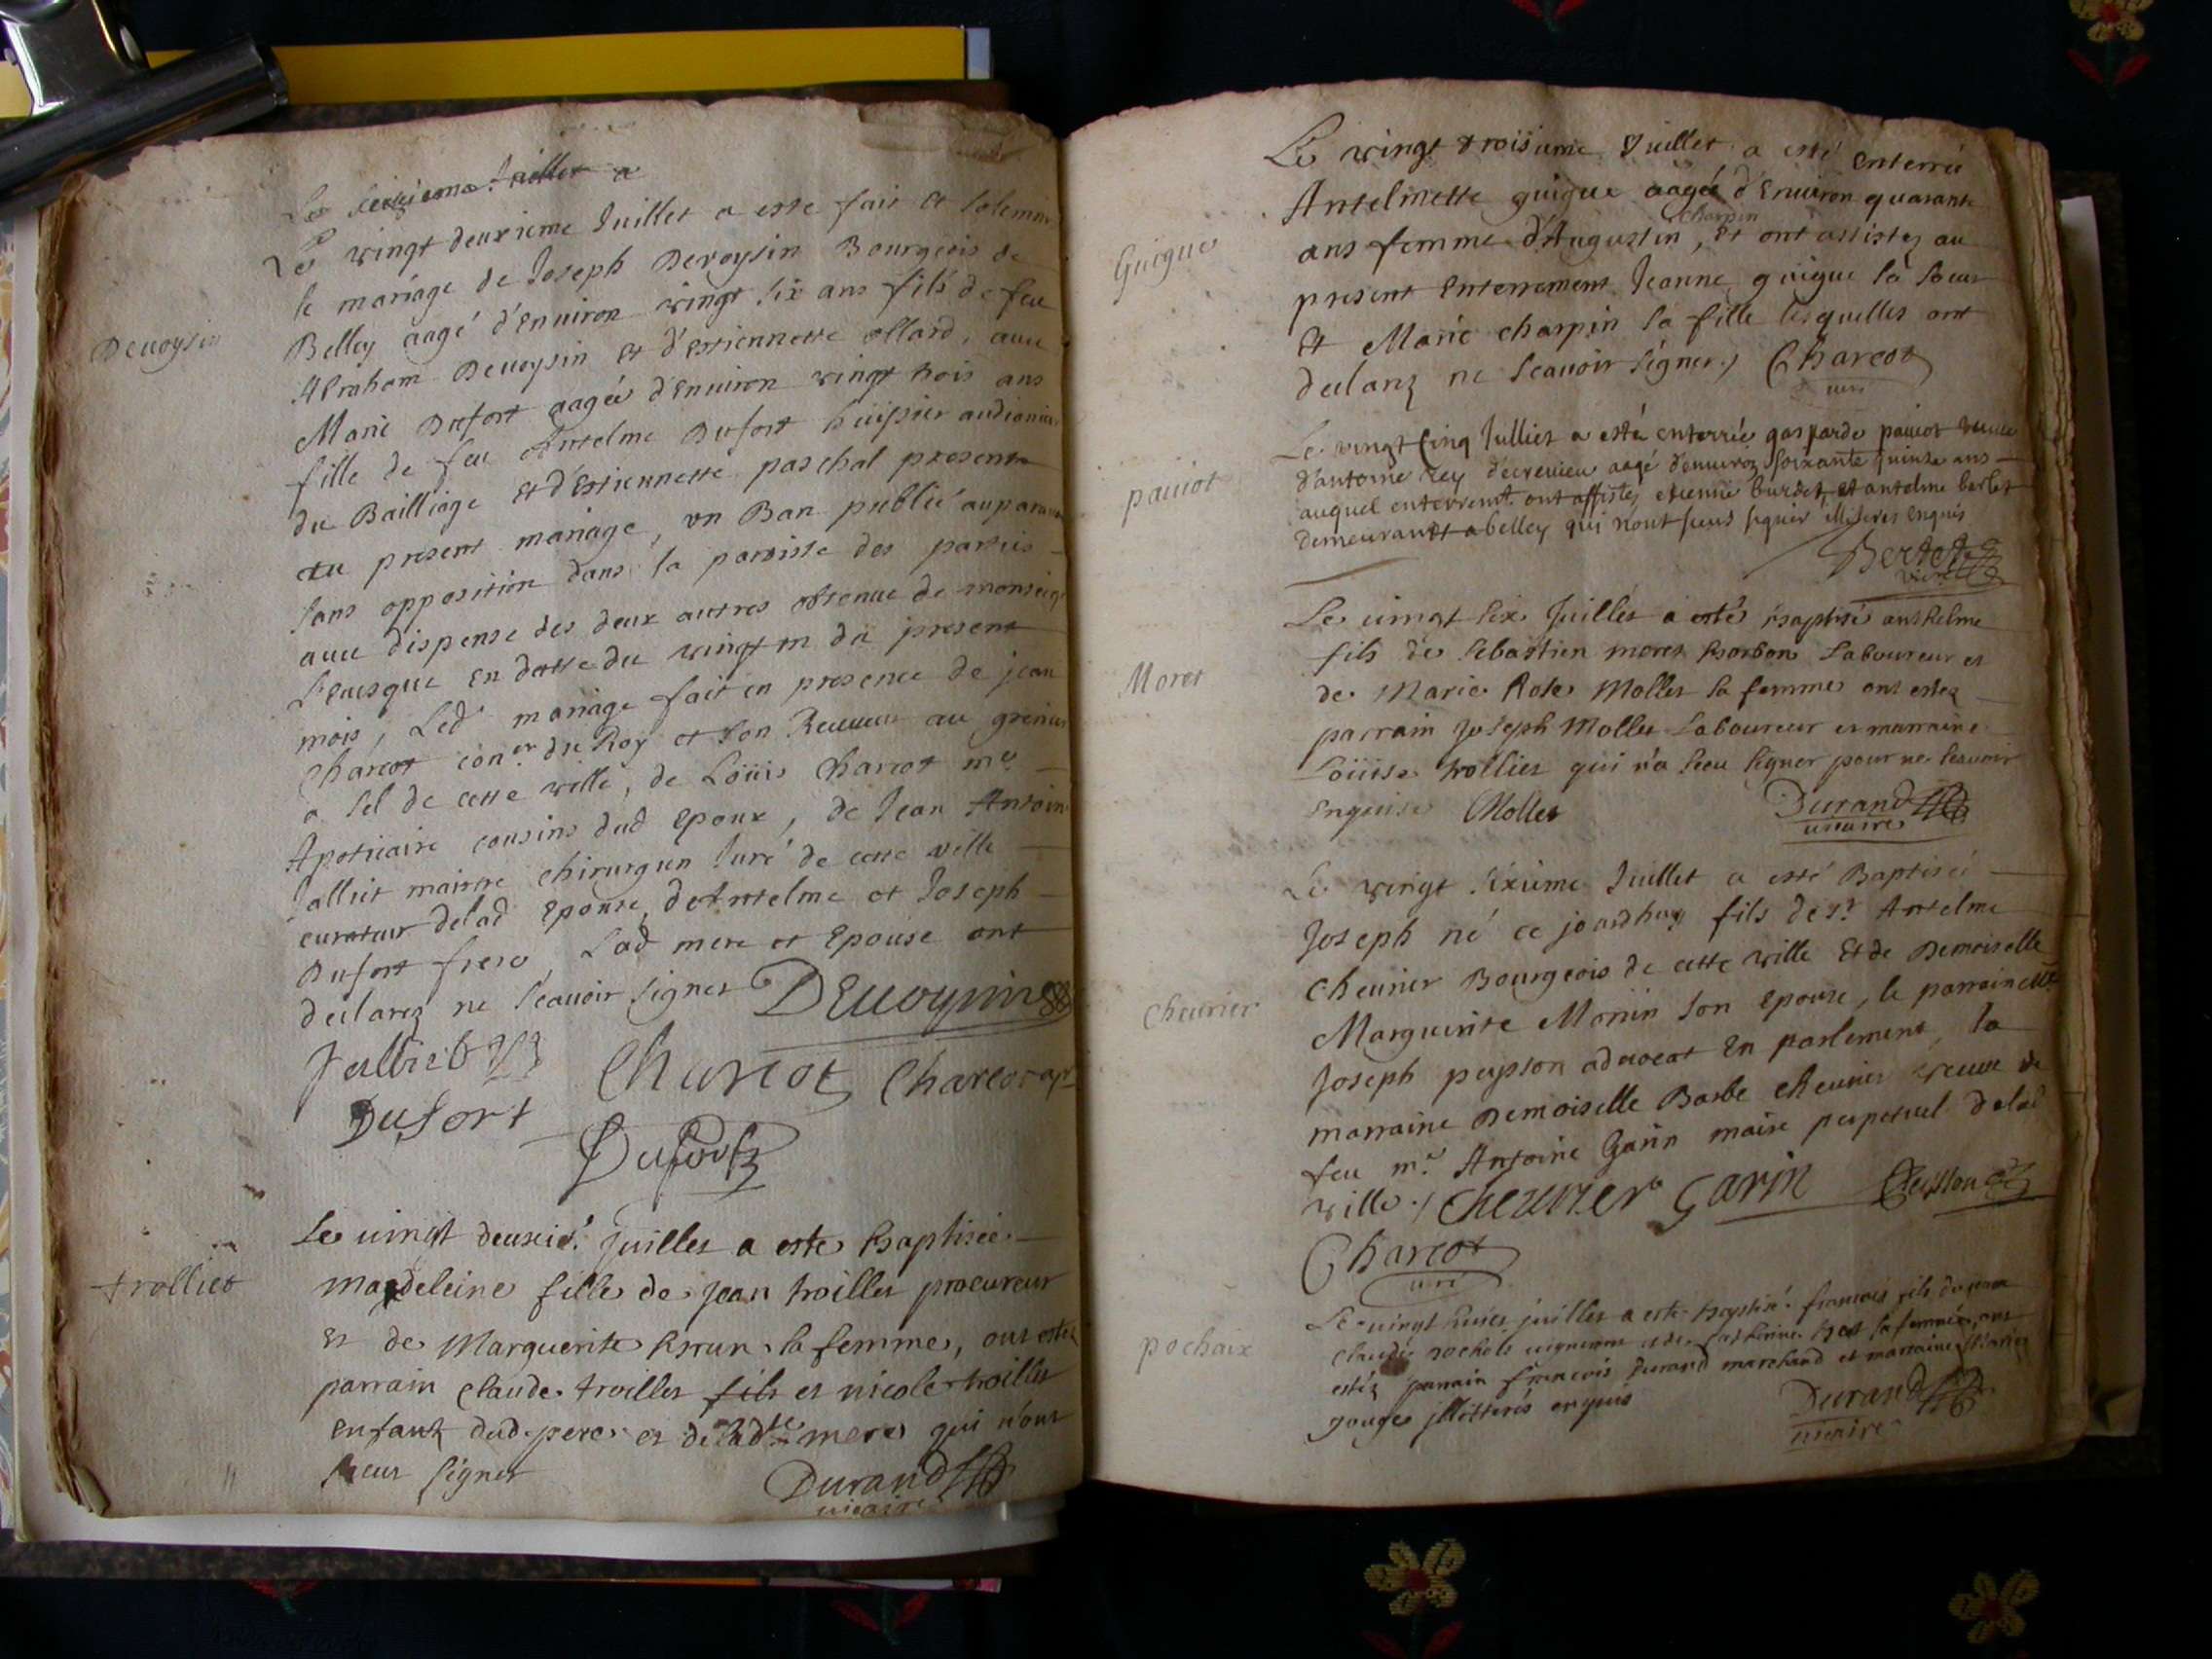 Le seizieme Juillet a
Le vingt deuxieme Juillet a este fait et solemni
Devoysin
le mariage de Joseph Devoysin Bourgeois de
Belley aagé d'Environ vingt six ans fils de feu
Abraham Devoysin et d'Estiennette ollard, avec
Marie Dufort aagée d'Environ vingt trois ans
fille de feu Antelme Dufort huissier audiancier
du Bailliage et d'Estiennette paschal presente
au present mariage, un Ban publié auparavant
sans opposition dans la paroisse des parties
avec dispense des deux autres obtenue de monseig
l'Evesque en datte du vingt un du present
mois, Led mariage fait en presence de jean
Charcot con.er du Roy et son Receveur au grenier
a sel de cette ville, de Loüis Charcot me
Apoticaire cousins dud Epoux, de Jean Antoine
Jalliet maistre chirurgien Juré de cette ville
curateur delad Epouse, de Antelme et Joseph
Dufort frere, Lad mere et Epouse ont
declarez ne sçavoir signer Devoysin
Jalliet Charcot Charcot ap
Dufort
Dufort
Le vingt deuxie.' juillet a este baptisée
trolliet
magdeleine fille de jean troillet procureur
et de Marguerite brun sa femme, ont estez
parrain claude troillet fils et nicole troillet
enfants dud pere et de ladte mere qui n'ont
sceus signer
Durand
vicaire
Le vingt troisieme Juillet a esté Enterrée
Guigue
Antelmette guigue aagée d'Environ quarante
ans femme d'Augustin charpin, Et ont assistez au
present Enterrement Jeanne guigue sa soeur
Et Marie charpin sa fille lesquelles ont
declarez ne scavoir signer./ Charcot
curé
Le vingt cinq Julliet a esté enterrée gasparde paviot veuve
paviot
d'antoine rey aagé d'environ soixante quinze ans
auquel enterremt. ont assistez estienne burdet et antelme berlet
demeurant a belley qui n'ont sceus signer illiteres enquis
Bertet
vic.
Le vingt six Juillet a esté baptisé anthelme
Moret
fils de sebastien moret borbon Laboureur et
de Marie Rose Mollet sa femme ont estez
parrain joseph Mollet Laboureur et marraine
Loüise trollier qui n'a sceu signer pour ne scavoir
Enquise Mollet Durand
vicaire
Le vingt sixieme Juillet a esté Baptisé
Joseph né ce jourdhuy fils de sr Antelme
chevrier
Chevrier Bourgeois de cette ville Et de Demoiselle
Marguerite Monin son Epouse, le parrain estté
Joseph peysson advocat En parlement, la
marraine Demoiselle Barbe chevrier veuve de
feu me Antoine Garin maire perpetuel delad
ville./ Chevrier Garin Peysson
Charcot
curé
Le vingt huict juillet a este baptisé francois fils de
pochaix
Claude pocheix vigneron et de Catherine sa femme, ont
estéz parrain francois Durand marchand et marraine Marie
gouge illitterés enquis
Durand
vicaire